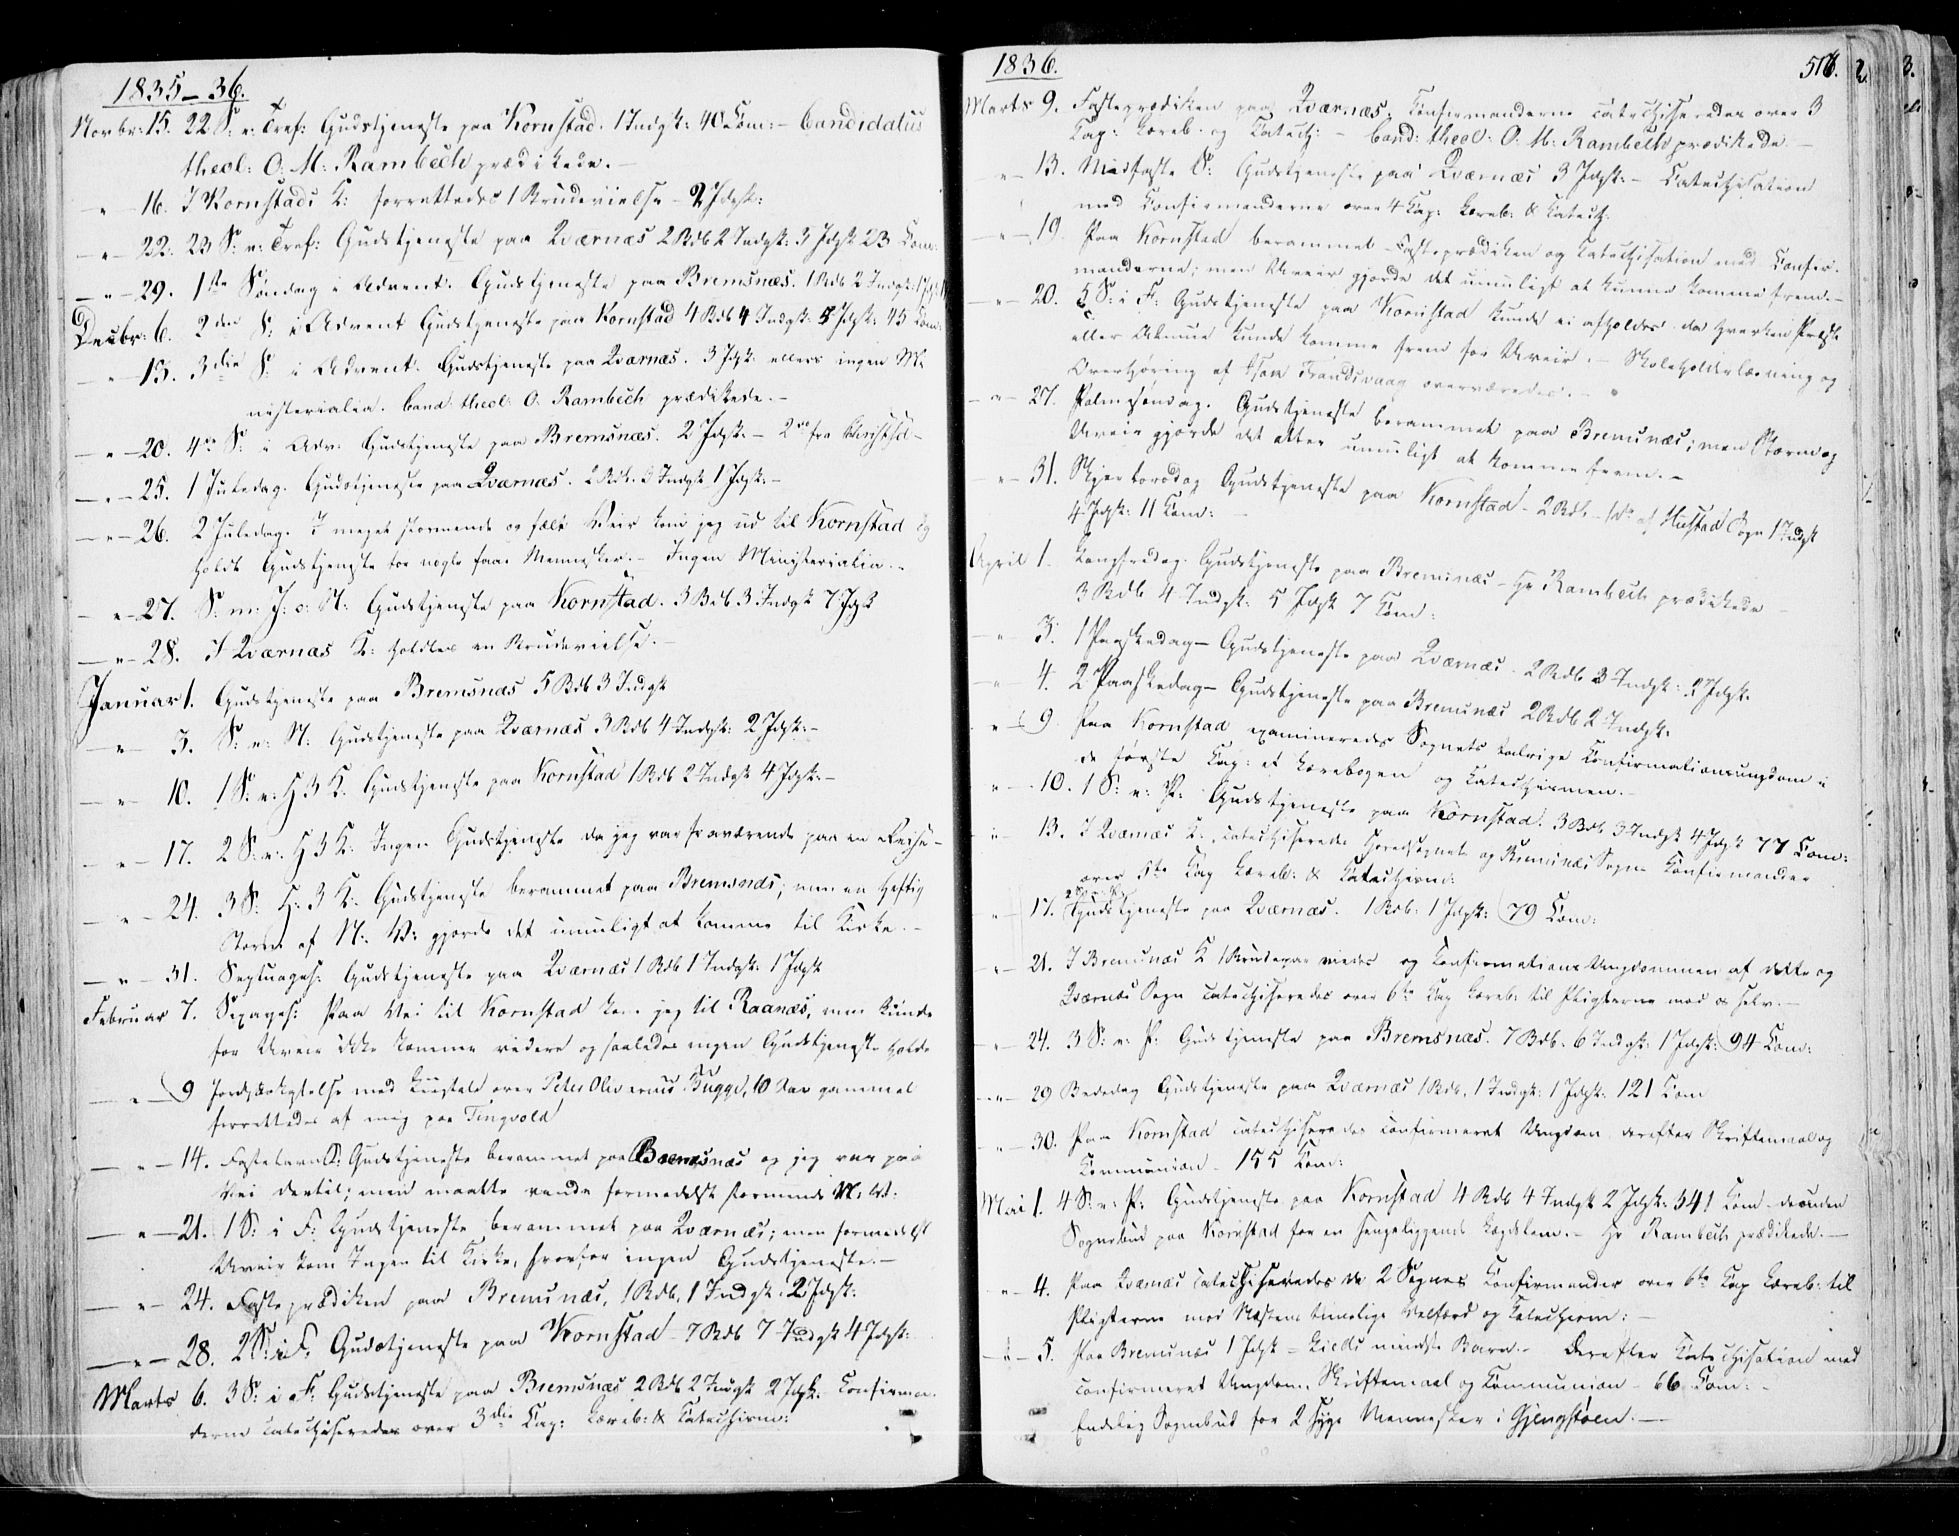 1835-36.
Novbr: 15. 22 S: e: Tref: Gudstjeneste paa Kornstad. 1 Indgk: 40 Com: - Candidatus
theol: O. M: Rambech prædikede. -
" - 16. I Kornstads K: forrettedes 1 Brudevielse - 2 Jdgk:
" - 22. 23 S: e: Tref: Gudstjeneste paa Qværnæs 2 Rdb 2 Indgk: 3 Jdgk 23 Com:
" - 29. 1ste Søndag i Advent. Gudstjeneste paa Bremsnæs. 1 Rdb 2 Indgk:
Decbr: 6. 2den S: i Advent Gudstjeneste paa Kornstad 4 Rdb 4 Indgk: 5 Jdgk: 45 Com:
" - 13. 3die S: i Advent. Gudstjeneste paa Qværnæs. 3 Jdgk: ellers ingen Mi-
nisterialia. Cand: theol: O. Rambech prædikede. -
" - 20. 4de S: i Adv: Gudstjeneste paa Bremsnæs. 2 Jdgk: - 2de fra
" - 25. 1 Juledag. Gudstjeneste paa Qværnæs. 2 Rdb. 3 Indgk 1 Jdgk: -
" - 26. 2 Juledag. I meget stormende og fælt Veir kom jeg ud til Kornstad og
holdt Gudstjeneste for nogle faae Mennesker. - Ingen Ministerialia. -
" - 27. S: m: J: o: N: Gudstjeneste paa Kornstad. 3 Rdb 3 Indgk 7 Jdgk
" - 28. I Qværnæs K: holdtes en Brudevielse. -
Januar 1. Gudstjeneste paa Bremsnæs 5 Rdb 3 Indgk
" - 3. S: e: N: Gudstjeneste paa Qværnæs 3 Rdb 4 Indgk: 2 Jdgk: -
" - 10. 1 S: e: H 3 K: Gudstjeneste paa Kornstad 1 Rdb 2 Indgk 4 Jdgk: -
" - 17. 2 S: e: H 3 K: Ingen Gudstjeneste da jeg var fraværende paa en Reise -
" - 24. 3 S: H: 3 K: Gudstjeneste berammet paa Bremsnæs; men en heftig
Storm af N: V: gjorde det umuligt at komme til Kirke. -
" - 31. Septuages: Gudstjeneste paa Qværnæs 1 Rdb 1 Indgk: 1 Jdgk
Februar 7. Sexages: Paa Vei til Kornstad kom jeg til Raanæs, men kunde
for Uveir ikke komme videre og saaledes ingen Gudstjeneste holde
" - 9 Jordpaakastelse med Liigtale over Peter Oliverius Bugge, 10 Dar gammel
forrettedes af mig paa Tingvold
" - 14. Fastelavns S: Gudstjeneste berammet paa Bremsnæs og jeg var paa
Vei dertil; men maatte vende formedelst stormende N: V:
" - 21. 1 S: i F: Gudstjeneste berammet paa Qværnæs; men formedelst
Uveir kom Ingen til Kirke, hvorfor ingen Gudstjeneste. -
" - 24. Fasteprædiken paa Bremsnæs, 1 Rdb, 1 Indgk. 2 Jdgk:
" - 28. 2 S: i F. Gudstjeneste paa Kornstad - 7 Rdb 7 Indgk 4 Jdgk:
Marts 6. 3 S: i F: Gudstjeneste paa Bremsnæs 2 Rdb 2 Indgk 2 Jdgk. Confirman-
derne catechiseredes over 3die Cap: Læreb: & Catechism:
1836.
Marts 9. Fasteprædiken paa Qværnæs. Confirmanderne catechiseredes over 3
Cap: Læreb. og Catech: - Cand: theol: O: M: Rambech prædikede. -
" - 13. Midfaste S: Gudstjeneste paa Qværnæs 3 Jdgk: - Catechisation
med Confirmanderne over 4 Cap: Læreb: & Catech:
" - 19. Paa Kornstad berammet Fasteprædiken og Catechisation med Confir-
manderne; men Uveir gjorde det umuligt at kunne komme frem. -
" - 20. 5 S: i F: Gudstjeneste paa Kornstad kunde ei afholdes da hverken Præst
eller Almue kunde komme frem for Uveir. - Skoleholderlæsning og
Overhøring af overværedes. -
" - 27. Palmesøndag. Gudstjeneste berammet paa Bremsnæs; men Storm og
Uveir gjorde det atter umuligt at komme frem. -
" - 31. Skjertorsdag Gudstjeneste paa Kornstad - 2 Rdb - af Hustad Sogn 1 Indgk
4 Jdgk: 11 Com: -
April 1. Langfredag. Gudstjeneste paa Bremsnæs - Hr Rambech prædikede -
3 Rdb 4 Indgk: 5 Jdgk 7 Com:
" - 3. 1 Paaskedag - Gudstjeneste paa Qværnæs - 2 Rdb 3 Indgk: 2 Jdgk:
" - 4. 2 Paaskedag - Gudstjeneste paa Bremsnæs 2 Rdb 2 Indgk:
" - 9. Paa Kornstad examineredes Sognets talrige Confirmationsungdom i
de første Cap: af Lærebogen og Catechismen. -
" - 10. 1 S: e: P: Gudstjeneste paa Kornstad. 3 Rdb 3 Indgk 4 Jdgk 77 Com:
" - 13. I Qværnæs K: catechiseredes Hovedsognets og Bremsnæs Sogns Confirmander
over Cap Læreb: & Catechism:
" - 17. Gudstjeneste paa Qværnæs. 1 Rdb: 1 Jdgk: 79 Com:
" - 21. I Bremsnæs K 1 Brudepar viedes og Confirmations Ungdommen af dette og
Qværnæs Sogn catechiseredes over 6te Cap Læreb: til Pligterne mod os selv. -
" - 24. 3 S: e: P: Gudstjeneste paa Bremsnæs. 7 Rdb. 6 Indgk: 1 Jdgk: 94 Com:
" - 29 Bededag Gudstjeneste paa Qværnæs 1 Rdb. 1 Indgk: 1 Jdgk: 121 Com
" - 30. Paa Kornstad catechiseredes confirmeret Ungdom derefter Skriftemaal og
Communion - 155 Com:
Mai 1. 4 S: e: P: Gudstjeneste paa Kornstad 4 Rdb 4 Indgk 2 Jdgk: 341 Com - desuden
Sognebud paa Kornstad for en sengeliggende Lægdslem. - Hr Rambech prædikede. -
" - 4. Paa Qværnæs catechiseredes de 2 Sognes Confirmander over 6te Cap Læreb: til
Pligterne mod Næstens timelige Velfærd og Catechism: -
" - 5. Paa Bremsnæs 1 Jdgk - mindste Barn. - Derefter Catechisation med
confirmeret Ungdom, Skriftemaal og Communion - 66 Com: -
Endelig Sognebud for 2 syge Mennesker i Gjengstøen. -